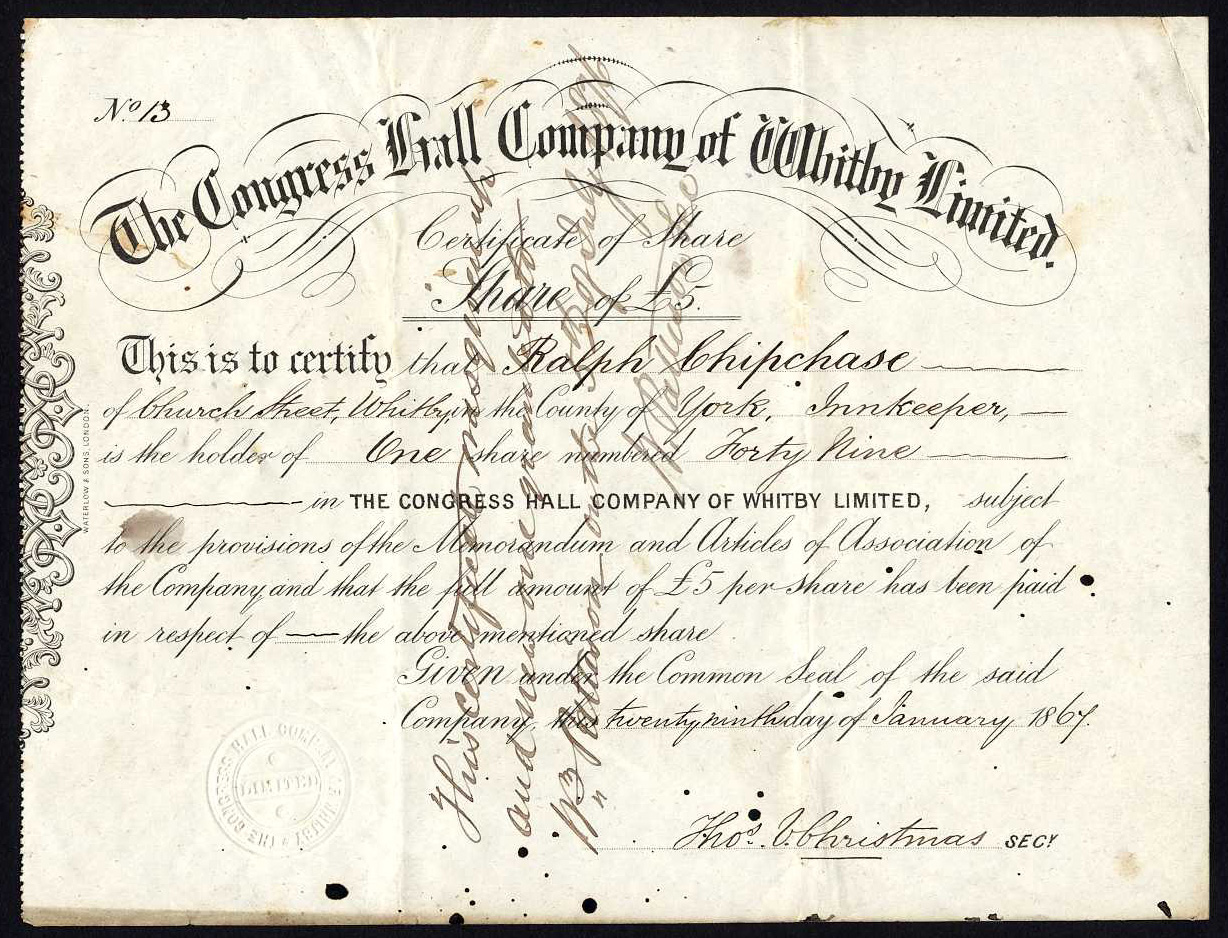 No 13
The Congress Hall Company of Whitby Limited.
Certificate of Share
Share of £5.
This is to certify that Ralph Chipchase
of Church Street, Whitby, in the County of York, Innkeeper,
is the holder of One share numbered Forty Nine
in THE CONGRESS HALL COMPANY OF WHITBY LIMITED, subject
to the provisions of the Memorandum and Articles of Association of
the Company and that the full amount of £5 per share has been paid
in respect of the above mentioned share
Given under the Common Seal of the said
Company, this twenty ninth day of January 1867.
Thos. V. Christmas SECY
WATERLOW & SONS, LONDON.
THE CONGRESS HALL COMPANY OF WHITBY
LIMITED
This certificate was
and new one